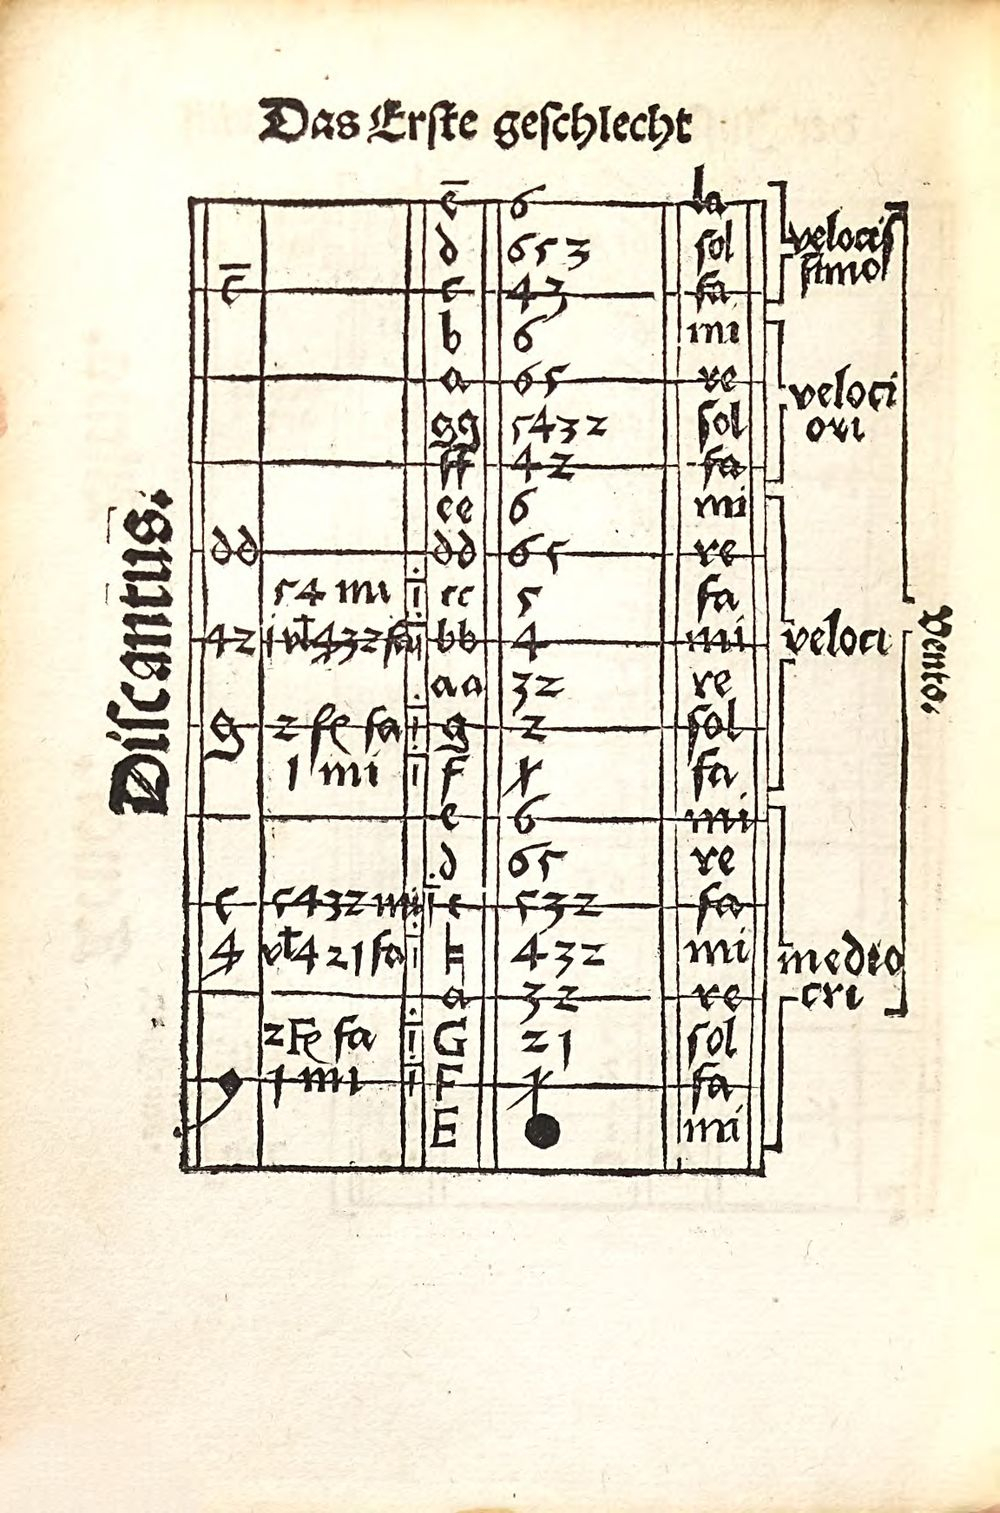 Das Erste geschlecht
Discantus.
ē 6 la
d 653 sol
c̄ c 43 fa
b 6 mi
a 65 re
gg 5432 sol
ff 42 fa
ee 6 mi
dd dd 65 re
54 mi i cc 5 fa
42 i vt 432 fa i bb 4 mi
aa 32 re
g 2 fe fa i g 2 sol
1 mi i F 1 fa
e 6 mi
d 65 re
c 5432 mi i c 532 fa
4 vt 421 fa i ♮ 432 mi
a 32 re
2 Fe fa i G 21 sol
1 mi i F 1 fa
E mi
velocis
simo
veloci
ori
veloci
medio
cri
Vento.